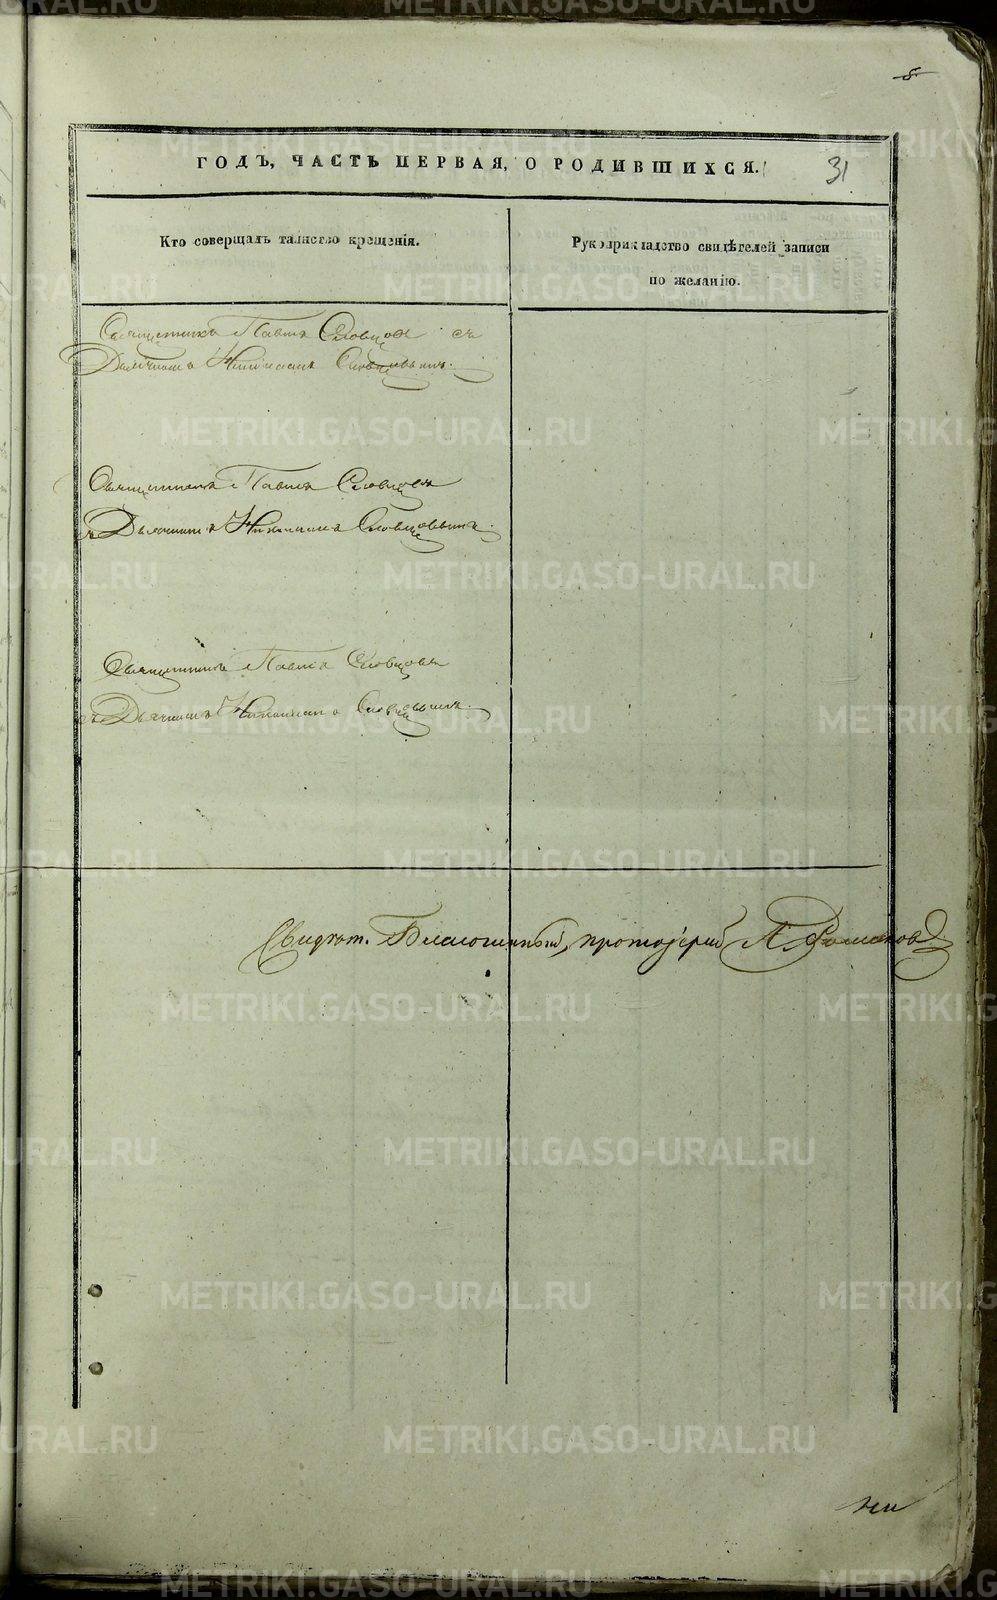 8
ГОДЪ, ЧАСТЬ ПЕРВАЯ, О РОДИВШИХСЯ.
31
Кто совершалъ таинство крещенія.
Рукоприкладство свидѣтелей записи
по желанію.
Священникъ Павелъ Словцовъ съ
Дьячкомъ Николаемъ Словцовымъ.
Священникъ Павелъ Словцовъ
съ Дьячкомъ Николаемъ Словцовымъ.
Священникъ Павелъ Словцовъ
съ Дьячкомъ Николаемъ Словцовымъ.
Свидѣт. Благочинный, протоіерей А.
METRIKI.GASO-URAL.RU